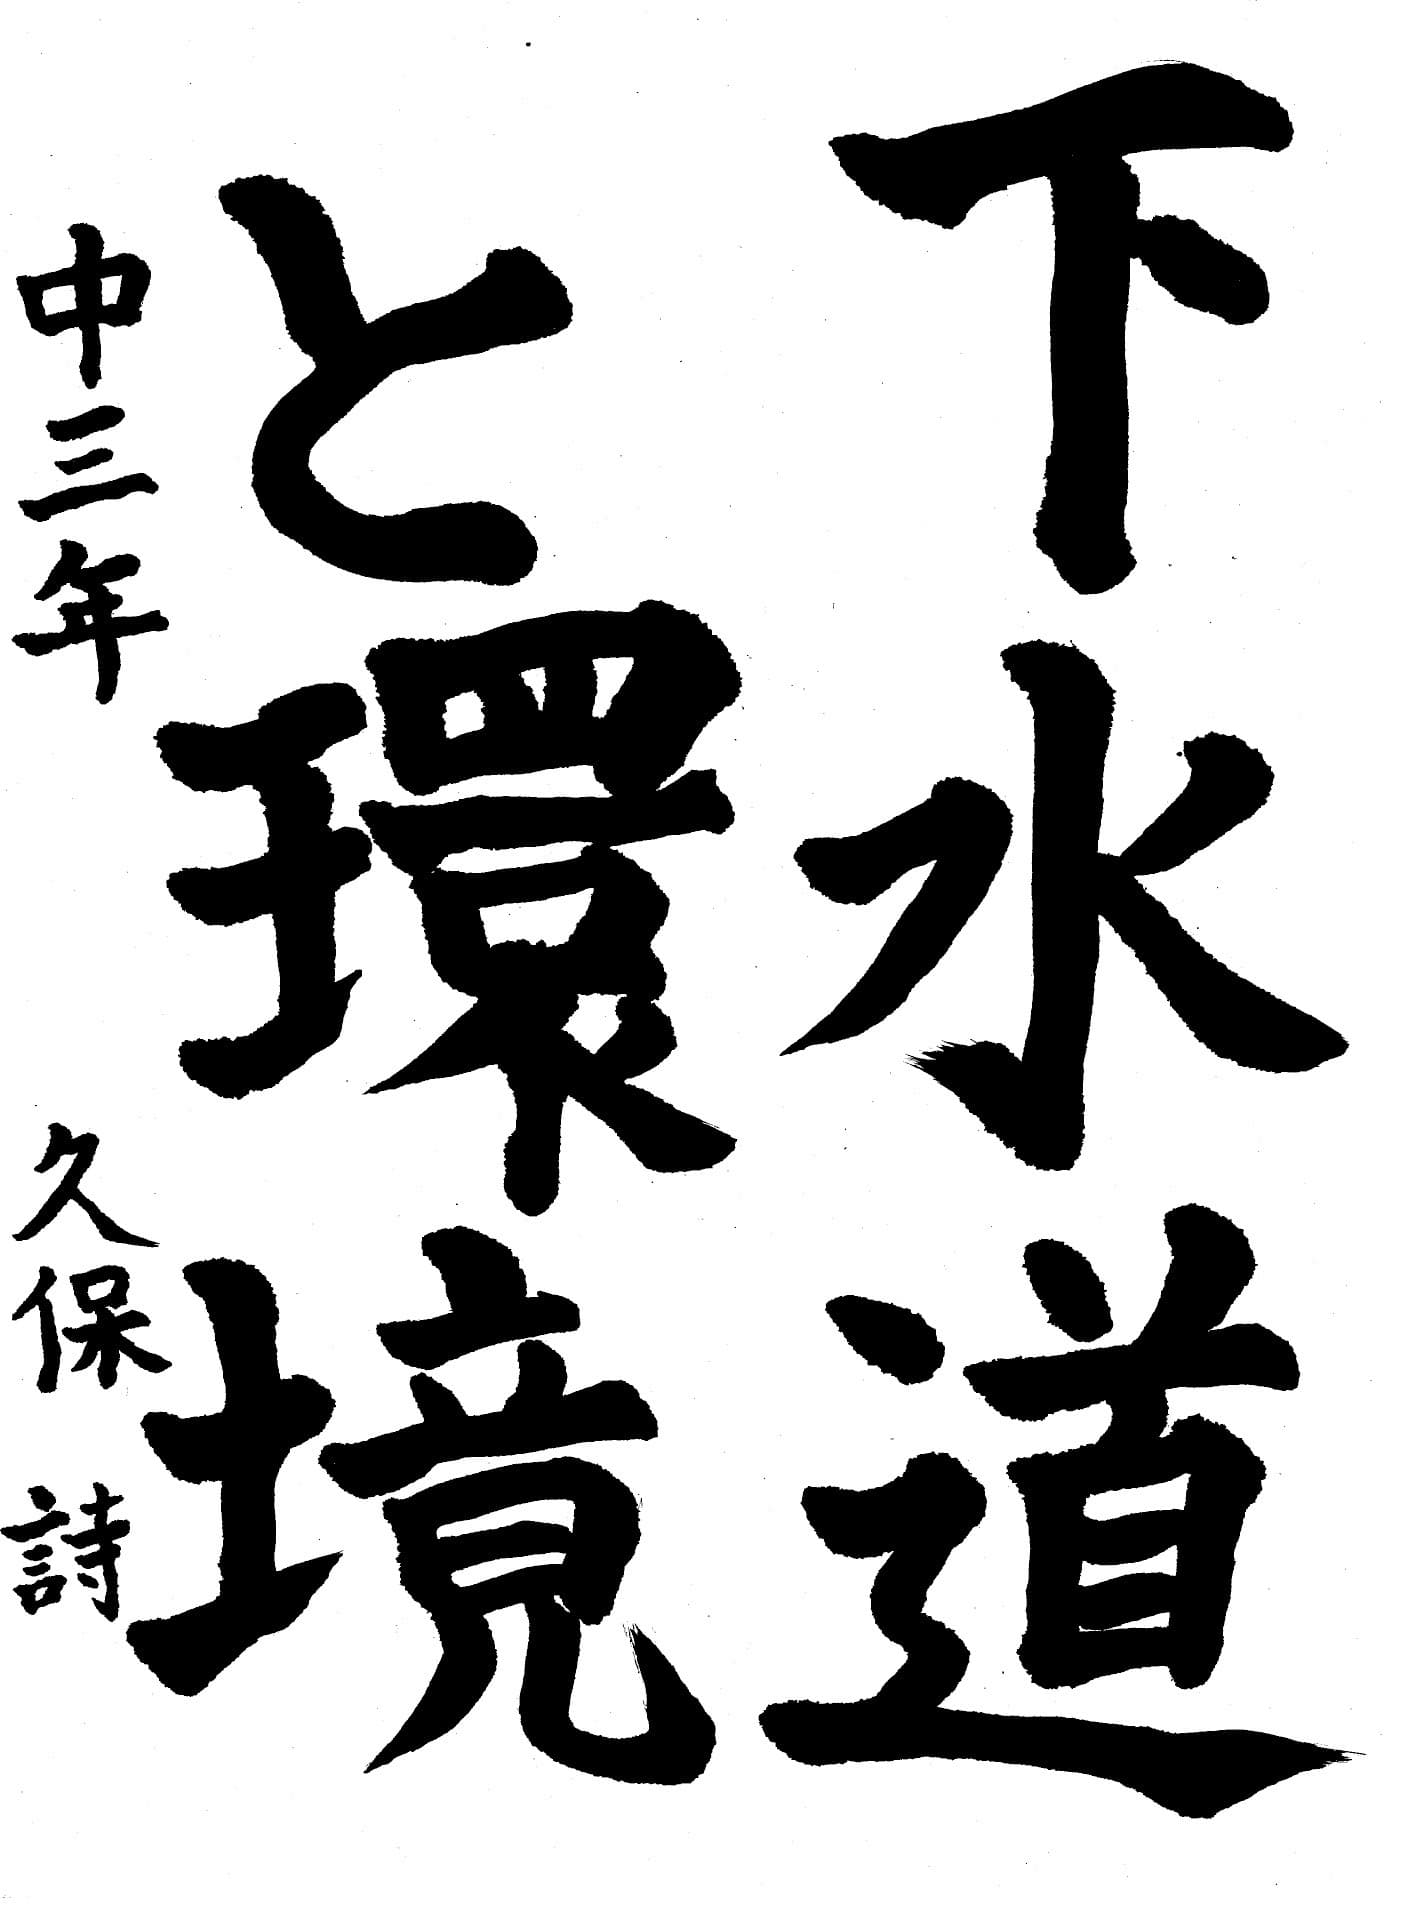 下水道
と環境
中三年 久保 詩